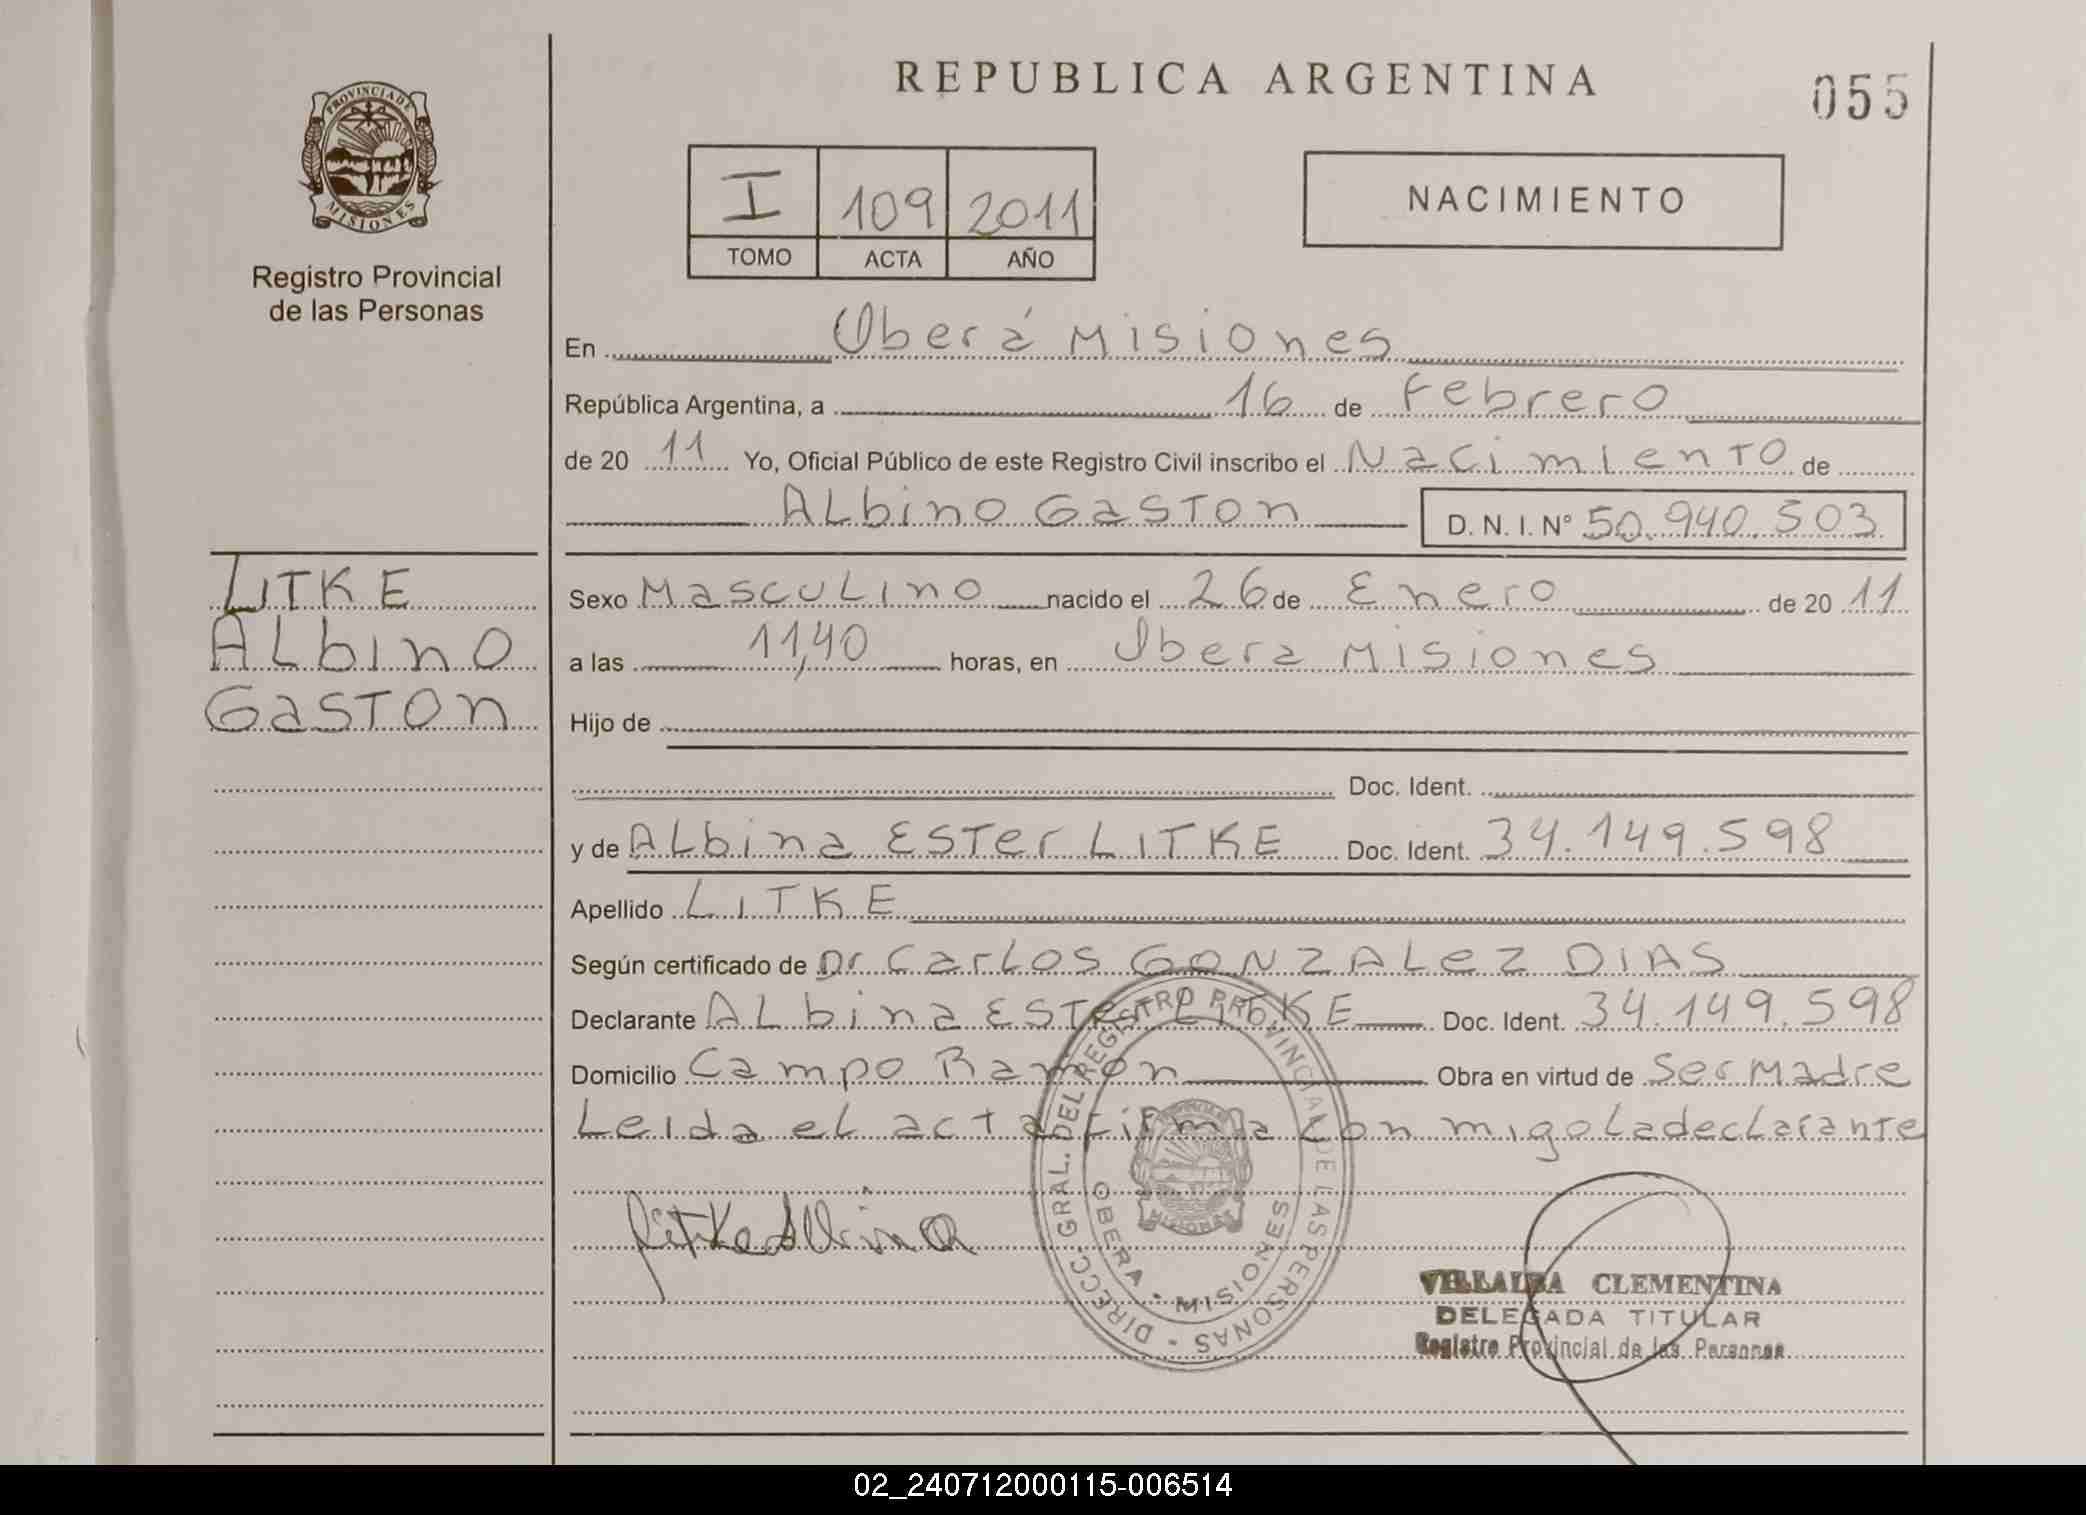 REPUBLICA ARGENTINA
055
PROVINCIA DE MISIONES
Registro Provincial
de las Personas
I 109 2011
TOMO ACTA AÑO
NACIMIENTO
En Oberá Misiones
República Argentina, a 16 de Febrero
de 20 11 Yo, Oficial Público de este Registro Civil inscribo el Nacimiento de
Albino Gaston D. N. I. N° 50.940.503
LITKE
Albino
Gaston
Sexo Masculino nacido el 26 de Enero de 20 11
a las 11,40 horas, en Obera Misiones
Hijo de
Doc. Ident.
y de Albina Ester LITKE Doc. Ident. 34.149.598
Apellido LITKE
Según certificado de Dr Carlos GONZALEZ DIAS
Declarante Albina Ester LITKE Doc. Ident. 34.149.598
Domicilio Campo Ramón Obra en virtud de Ser Madre
Leida el acta firma con migo la declarante
Litke Albina
DIRECC. GRAL. DEL REGISTRO PROVINCIAL DE LAS PERSONAS
MISIONES
OBERA - MISIONES
VILLALBA CLEMENTINA
DELEGADA TITULAR
Registro Provincial de las Personas
02_240712000115-006514